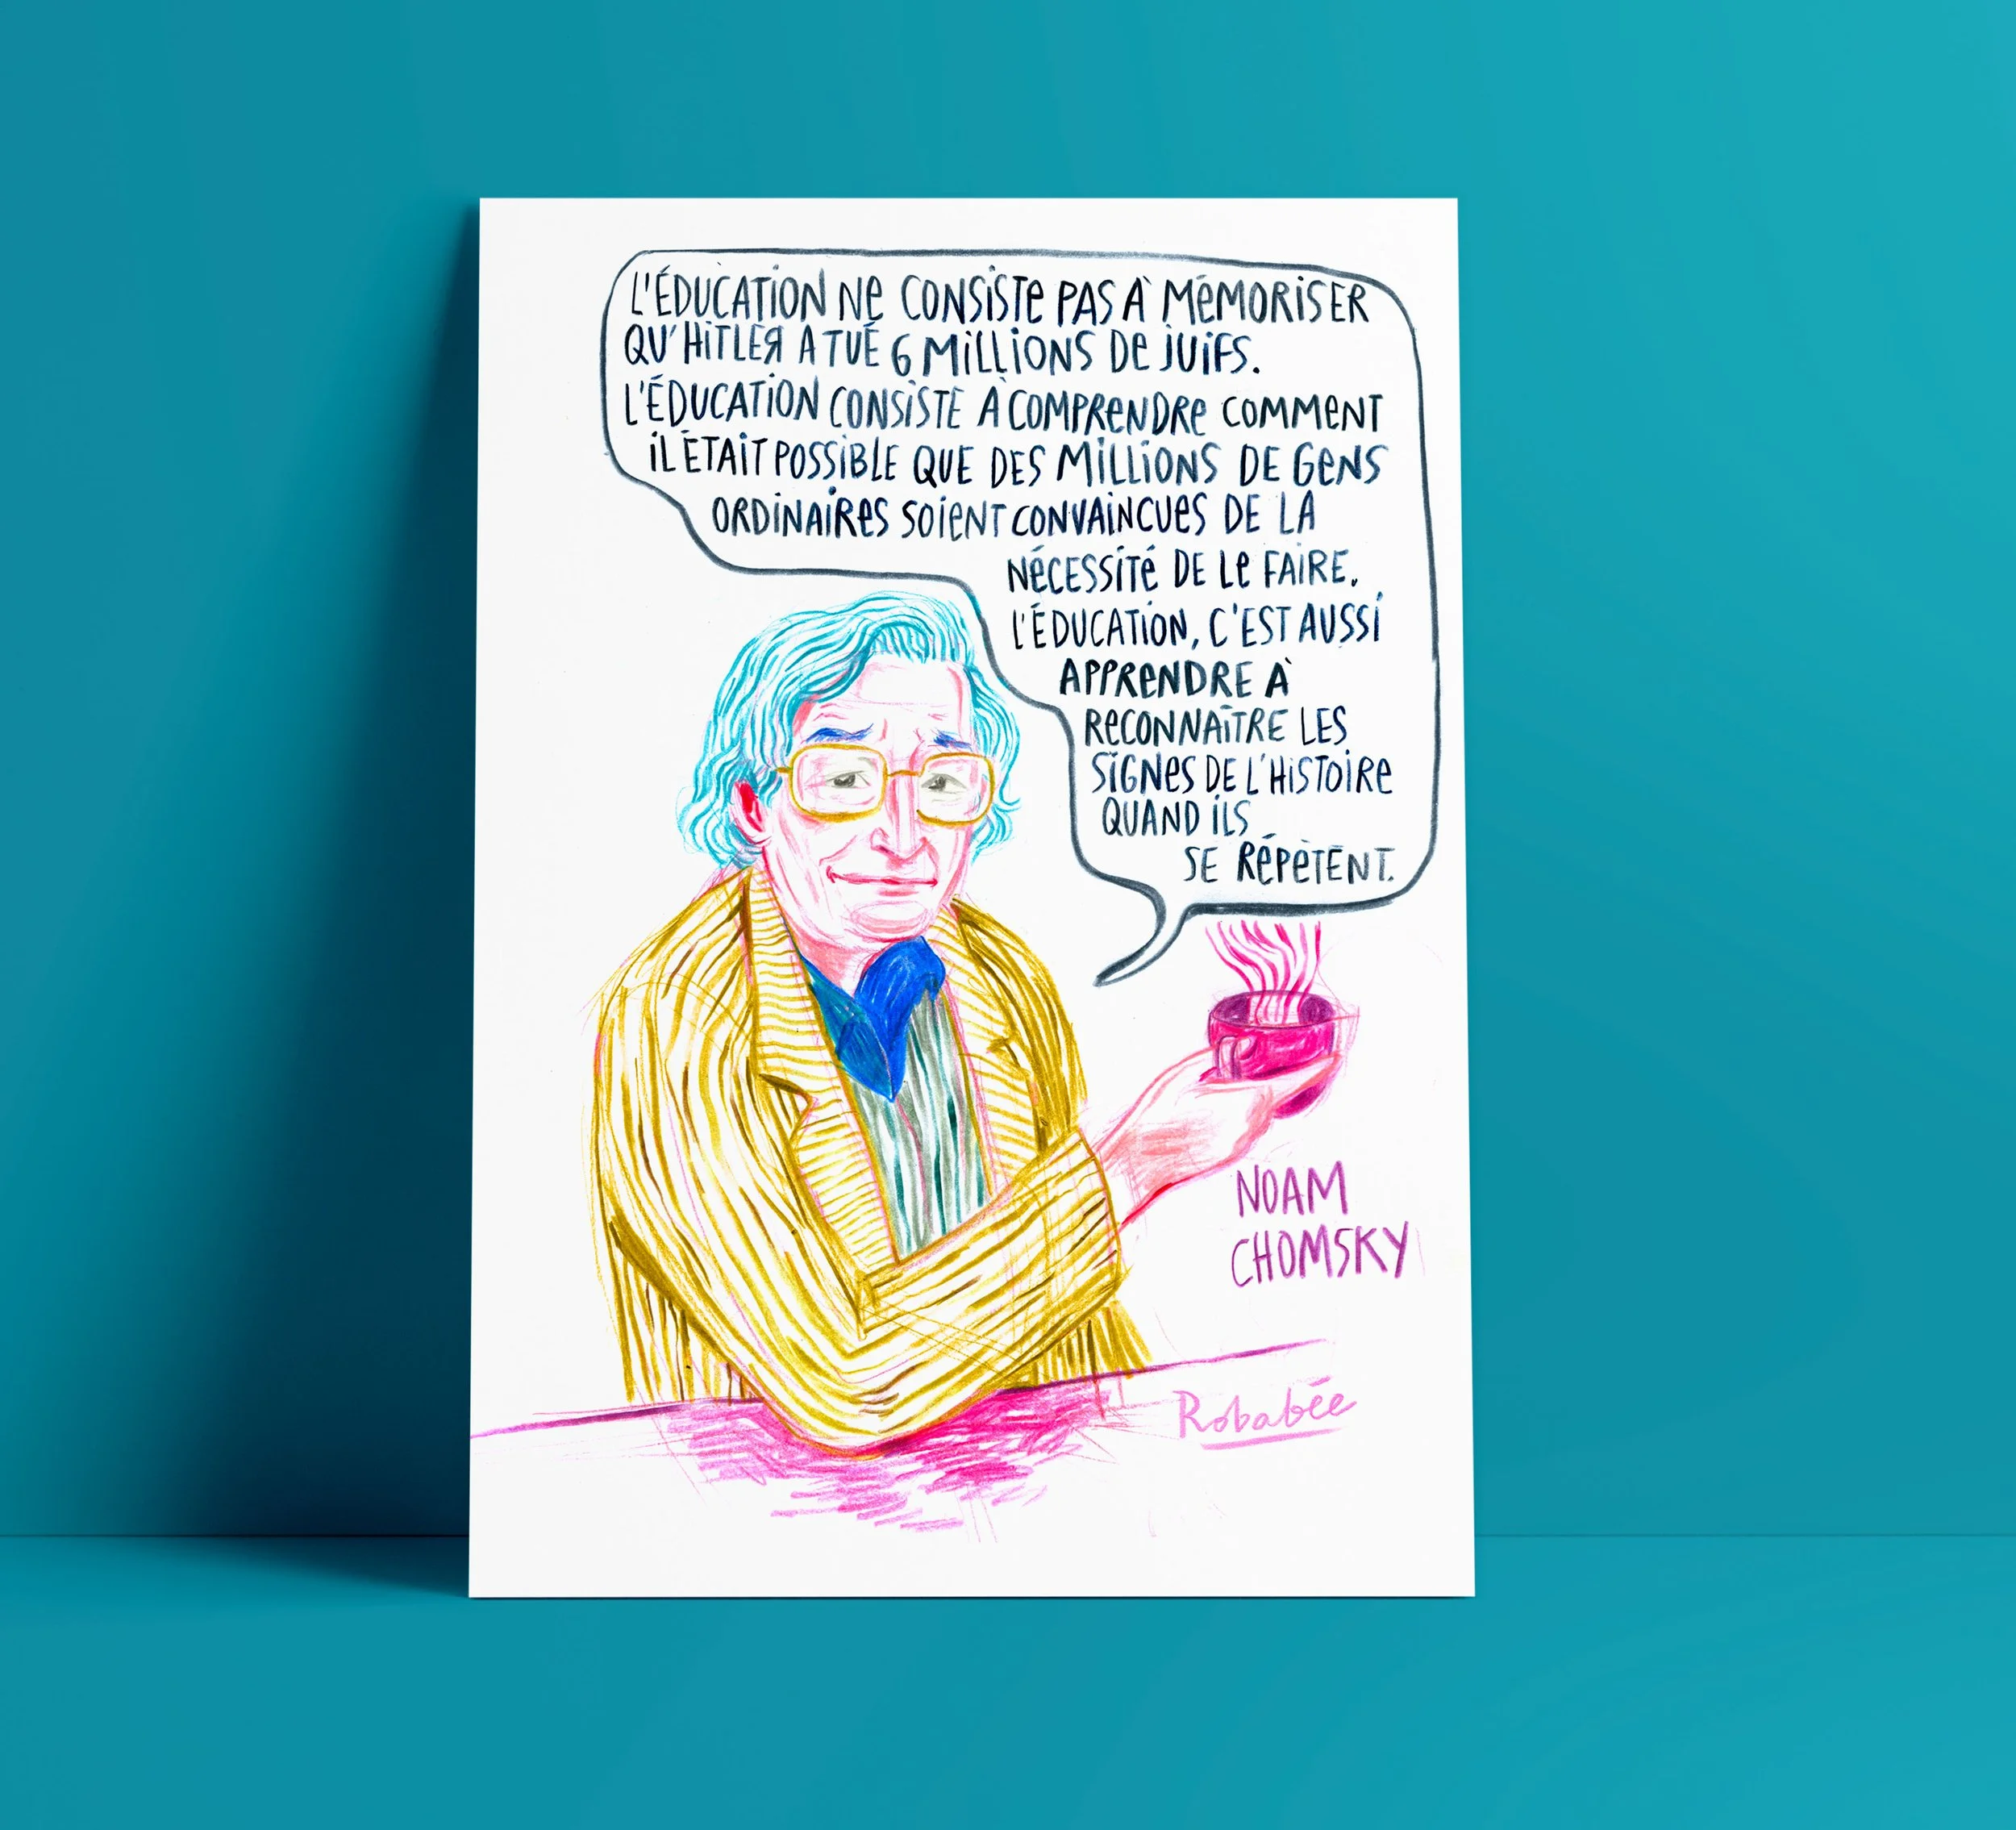 L'ÉDUCATION NE CONSISTE PAS À MÉMORISER
QU'HITLER A TUÉ 6 MILLIONS DE JUIFS.
L'ÉDUCATION CONSISTE À COMPRENDRE COMMENT
IL ÉTAIT POSSIBLE QUE DES MILLIONS DE GENS
ORDINAIRES SOIENT CONVAINCUES DE LA
NÉCESSITÉ DE LE FAIRE.
L'ÉDUCATION, C'EST AUSSI
APPRENDRE À
RECONNAÎTRE LES
SIGNES DE L'HISTOIRE
QUAND ILS
SE RÉPÈTENT.
NOAM
CHOMSKY
Robabée